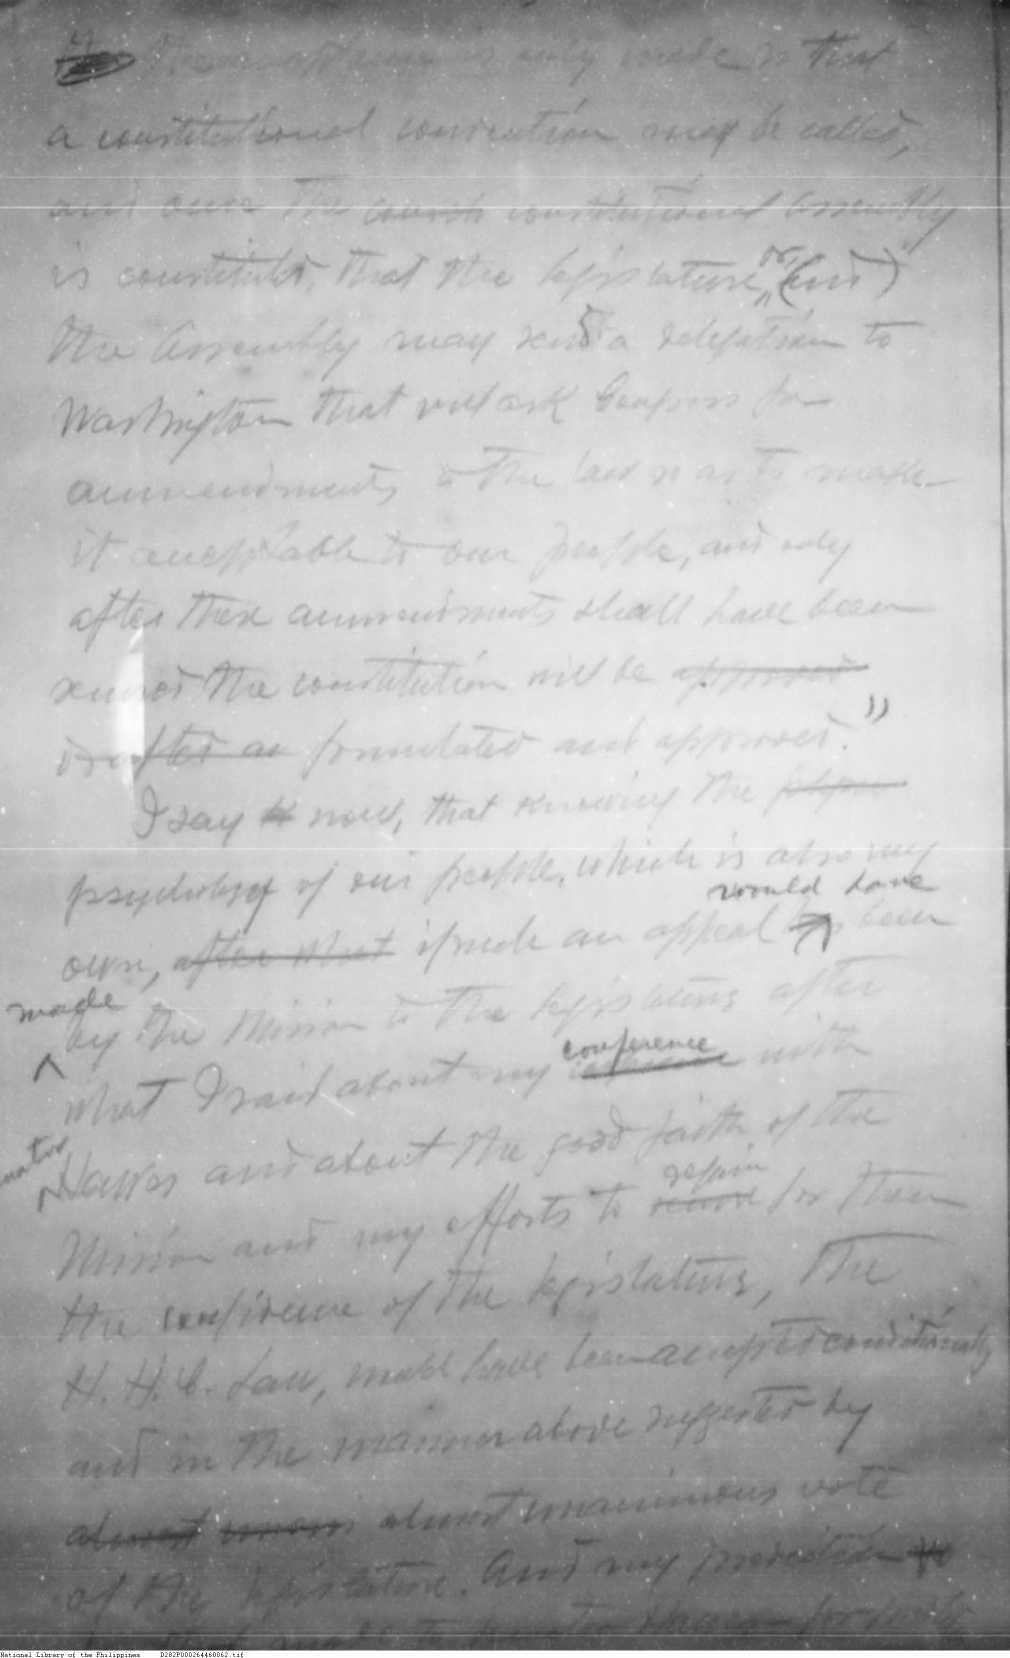 is only made so that
a constitutional convention may be called,
and once the constitutional Assembly
is constituted, that the legislature, or, (and)
the Assembly may send a delegation to
Washington that will ask Congress for
ammendments to the law so as to make
it acceptable to our people, and only
after these ammendments shall have been
secured the constitution will be approved
drafted an formulated and approved."
I say now, that knowing the
psychology of our people, which is also my
would have
own, after what if such an appeal been
made
by the Mission to the legislature after
conference
what I said about my with
Hawes and about the good faith of the
regain
Mission and my efforts to for them
the confidence of the legislature, the
H. H. C. Law, would have been accepted conditionally
and in the manner above suggested by
almost almost unanimous vote
of the legislature. And my prediction